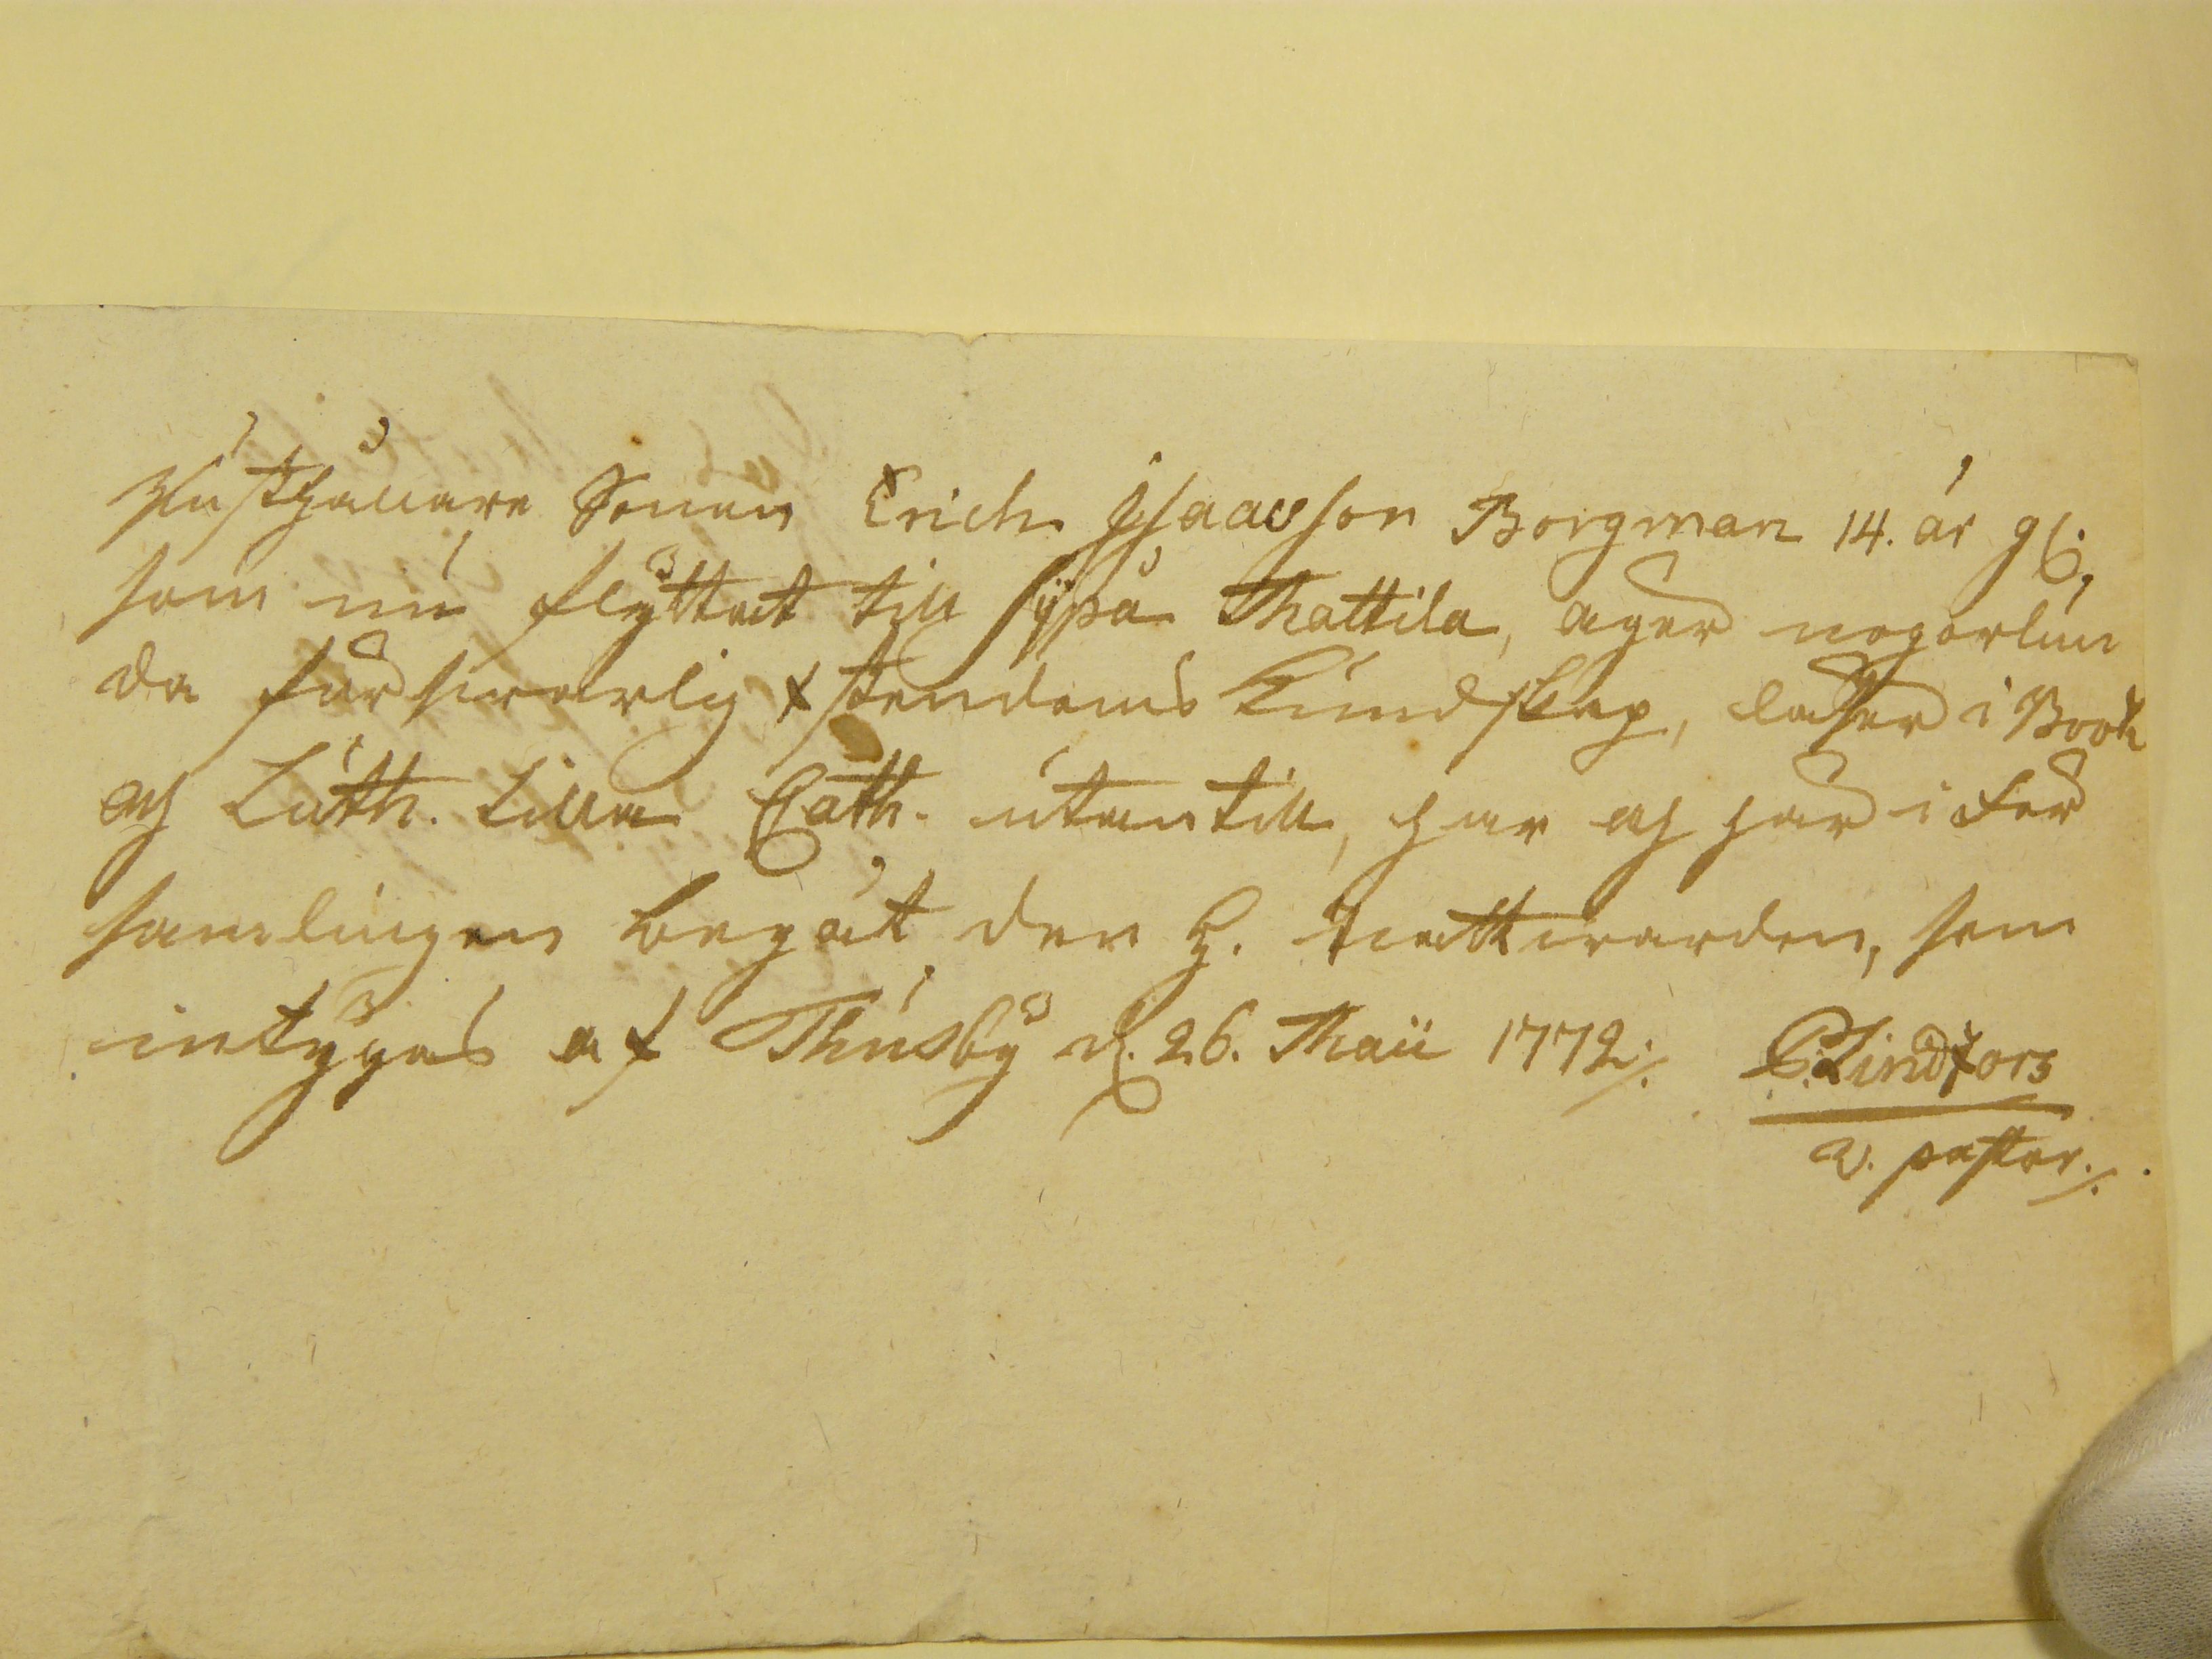 Rusthållare Sonen Erich Jsaacsson Borgman 14. år gl.,
som nu flyttat till Mattila, äger nogorlun
da försvarlig Christendoms Kundskap, läser i Book
och Luth. Lilla Cath. utantill, har och här i För
samlingen begåt den H. Nattwarden, som
intygas af Thusby d. 26. Maii 1772 ./. C. Lindfors
v. pastor ./.